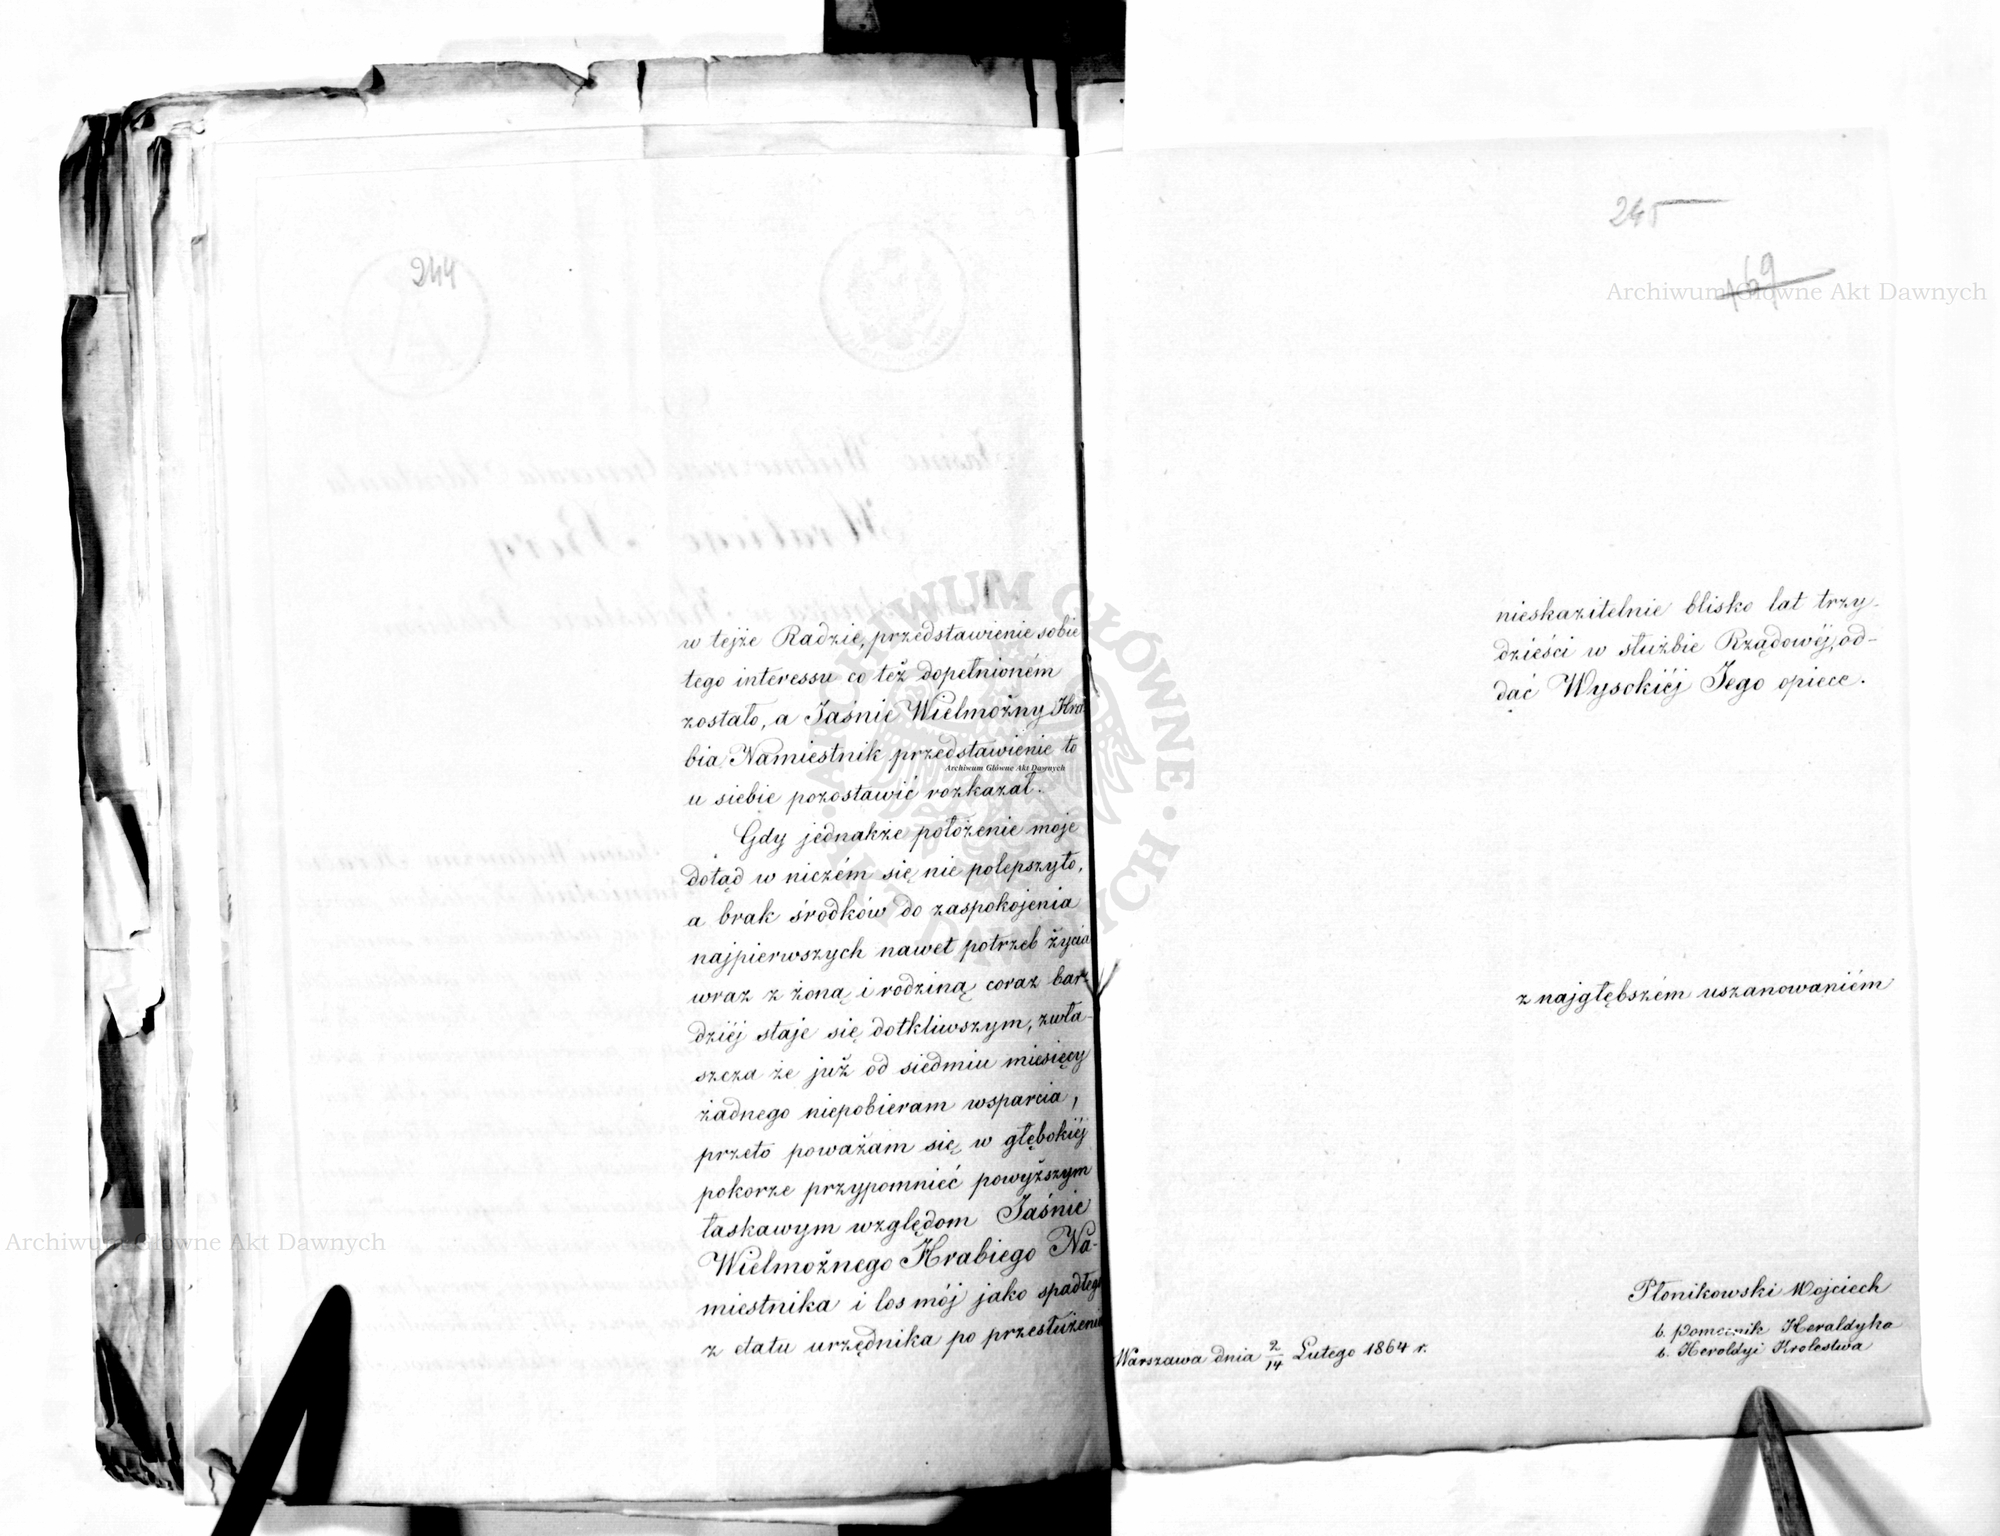 244
w tejże Radzie, przedstawienie sobie
tego interessu co też dopełnioném
zostało, a Jaśnie Wielmożny Hra-
bia Namiestnik przedstawienie to
u siebie pozostawić rozkazał.
Gdy jednakże położenie moje
dotąd w niczém się nie polepszyło,
a brak środków do zaspokojenia
najpierwszych nawet potrzeb życia
wraz z żoną i rodziną coraz bar-
dziéj staje się dotkliwszym, zwła-
szcza że już od siedmiu miesięcy
żadnego niepobieram wsparcia,
przeto poważam się w głębokiéj
pokorze przypomnieć powyższym
łaskawym względom Jaśnie
Wielmożnego Hrabiego Na-
miestnika i los mój jako spadłego
z etatu urzędnika po przesłużeniu
245
169
nieskazitelnie blisko lat trzy-
dzieści w służbie Rządowéj, od-
dać Wysokiéj Jego opiece.
z najgłębszém uszanowaniém
Płonikowski Wojciech
b. Pomocnik Heraldyka
b. Heroldyi Królestwa
Warszawa dnia 2/14 Lutego 1864 r.
Archiwum Główne Akt Dawnych
Archiwum Główne Akt Dawnych
Archiwum Główne Akt Dawnych
ARCHIWUM GŁÓWNE AKT DAWNYCH